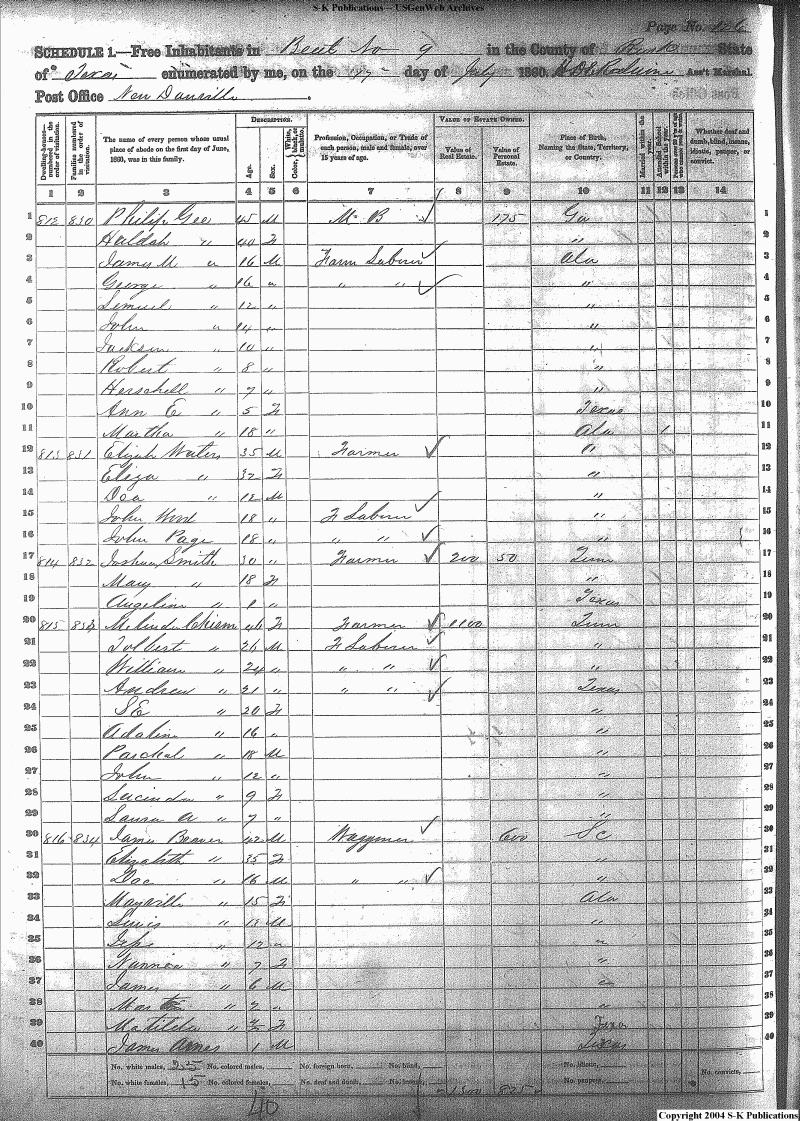 S-K Publications -- USGenWeb Archives
Page No. 126
SCHEDULE 1.—Free Inhabitants in Beat No 9 in the County of Rusk State
of Texas enumerated by me, on the day of July 1860. Ass't Marshal.
Post Office New Danville.
Dwelling-houses—numbered in the order of visitation.
Families numbered in the order of visitation.
The name of every person whose usual place of abode on the first day of June, 1860, was in this family.
DESCRIPTION.
Age.
Sex.
Color, White, black, or mulatto.
Profession, Occupation, or Trade of each person, male and female, over 15 years of age.
VALUE OF ESTATE OWNED.
Value of Real Estate.
Value of Personal Estate.
Place of Birth, Naming the State, Territory, or Country.
Married within the year.
Attended School within the year.
Persons over 20 y'rs of age who cannot read & write.
Whether deaf and dumb, blind, insane, idiotic, pauper, or convict.
1 2 3 4 5 6 7 8 9 10 11 12 13 14
1 812 830 Philip Geo 45 M M B 175 Ga 1
2 Huldah " 40 F " 2
3 James M " 16 M Farm Laborer Ala 3
4 George " 16 " " " " 4
5 Lemuel " 12 " " 5
6 John " 14 " " 6
7 Jackson " 10 " " 7
8 Robert " 8 " " 8
9 Herschell " 7 " " 9
10 Ann E " 5 F Texas 10
11 Martha " 18 " Ala 1 11
12 813 831 Elijah Waters 35 M Farmer " 12
13 Eliza " 32 F " 13
14 Doa " 12 M " 14
15 John 18 " F Laborer " 15
16 John Page 18 " " " " 16
17 814 832 Joshua Smith 30 " Farmer 200 50 Tenn 17
18 Mary " 18 F " 18
19 Angeline " 1 " Texas 19
20 815 833 Melinda Chism 46 F Farmer 1100 Tenn 20
21 Tolbert " 26 M F Laborer " 21
22 William " 24 " " " " 22
23 Andrew " 21 " " " Texas 23
24 S E " 20 F " 24
25 Adaline " 16 " " 25
26 Paschal " 18 M " 26
27 John " 12 " " 27
28 Lucinda " 9 F " 28
29 Laura A " 7 " " 29
30 816 834 James Beaver 42 M Waggoner 600 SC 30
31 Elizabeth " 35 F " 31
32 Doc " 16 M " " " 32
33 Mayville " 15 F Ala 33
34 Lewis " 13 M " 34
35 " 12 " " 35
36 Nannie " 7 F " 36
37 James " 6 M " 37
38 " 2 " " 38
39 Matilda " F Texa 39
40 James 1 M Texas 40
No. white males, 25 No. colored males, No. foreign born, No. blind, No. idiotic, No. convicts,
No. white females, 15 No. colored females, No. deaf and dumb, No. insane, 1300 825 No. paupers,
40
Copyright 2004 S-K Publications